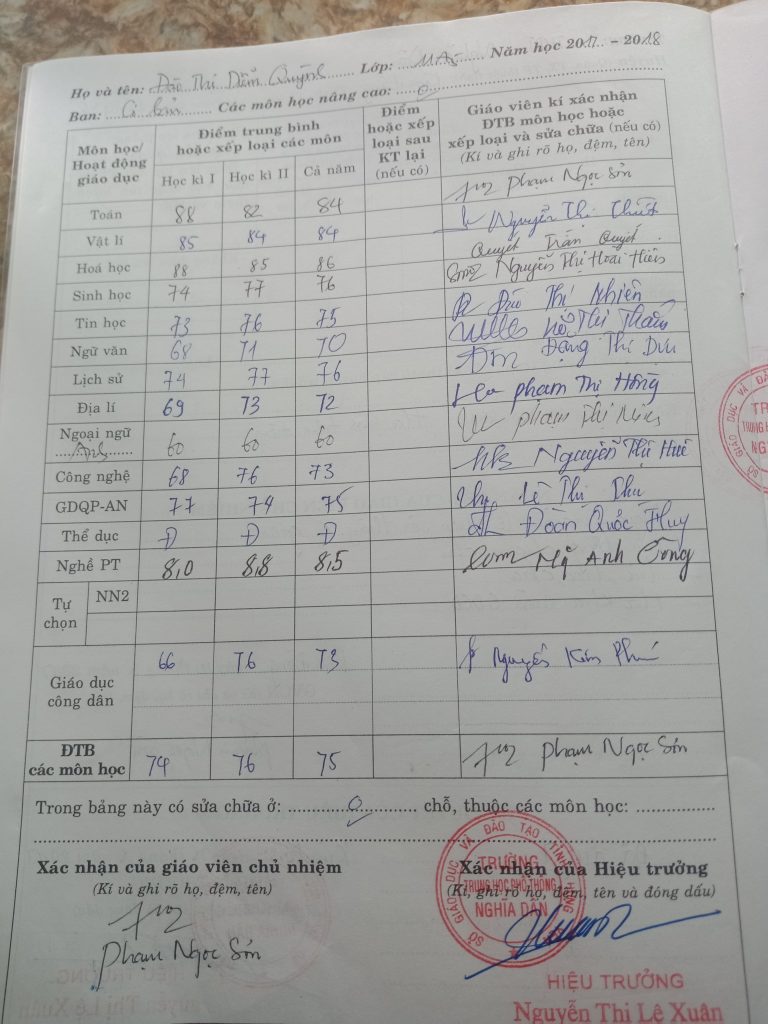 Họ và tên: Đào Thị Diễm Quỳnh Lớp: 11A5 Năm học 2017 - 2018
Ban: Cơ bản Các môn học nâng cao: 0
Môn học/ Hoạt động giáo dục
Điểm trung bình hoặc xếp loại các môn
Học kì I Học kì II Cả năm
Điểm hoặc xếp loại sau KT lại (nếu có)
Giáo viên kí xác nhận ĐTB môn học hoặc xếp loại và sửa chữa (nếu có)
(Kí và ghi rõ họ, đệm, tên)
Toán 88 82 84 Phạm Ngọc Sỏn
Vật lí 85 84 84 Nguyễn Thị
Quyết Trần Quyết
Hoá học 88 85 86 Nguyễn Thị Hoài Hiên
Sinh học 74 77 76 Đào Thị Nhiên
Tin học 73 76 75 Thị
Ngữ văn 68 71 70 Đặng Thị Dịu
Lịch sử 74 77 76 Phạm Thị Hồng
Địa lí 69 73 72 Phạm Thị
Ngoại ngữ Anh 60 60 60 Nguyễn Thị Huê
Công nghệ 68 76 73 Lê Thị Thu
GDQP-AN 77 74 75 Đoàn Quốc Huy
Thể dục Đ Đ Đ
Nghề PT 8,0 8,8 8,5 Anh
Tự chọn NN2
Giáo dục công dân 66 76 73 Nguyễn Kim
ĐTB các môn học 74 76 75 Phạm Ngọc Sỏn
Trong bảng này có sửa chữa ở: 0 chỗ, thuộc các môn học:
Xác nhận của giáo viên chủ nhiệm
(Kí và ghi rõ họ, đệm, tên)
Phạm Ngọc Sỏn
Xác nhận của Hiệu trưởng
(Kí, ghi rõ họ, đệm, tên và đóng dấu)
SỞ GIÁO DỤC VÀ ĐÀO TẠO TỈNH
TRƯỜNG
TRUNG HỌC PHỔ THÔNG
NGHĨA DÂN
HIỆU TRƯỞNG
Nguyễn Thị Lệ Xuân